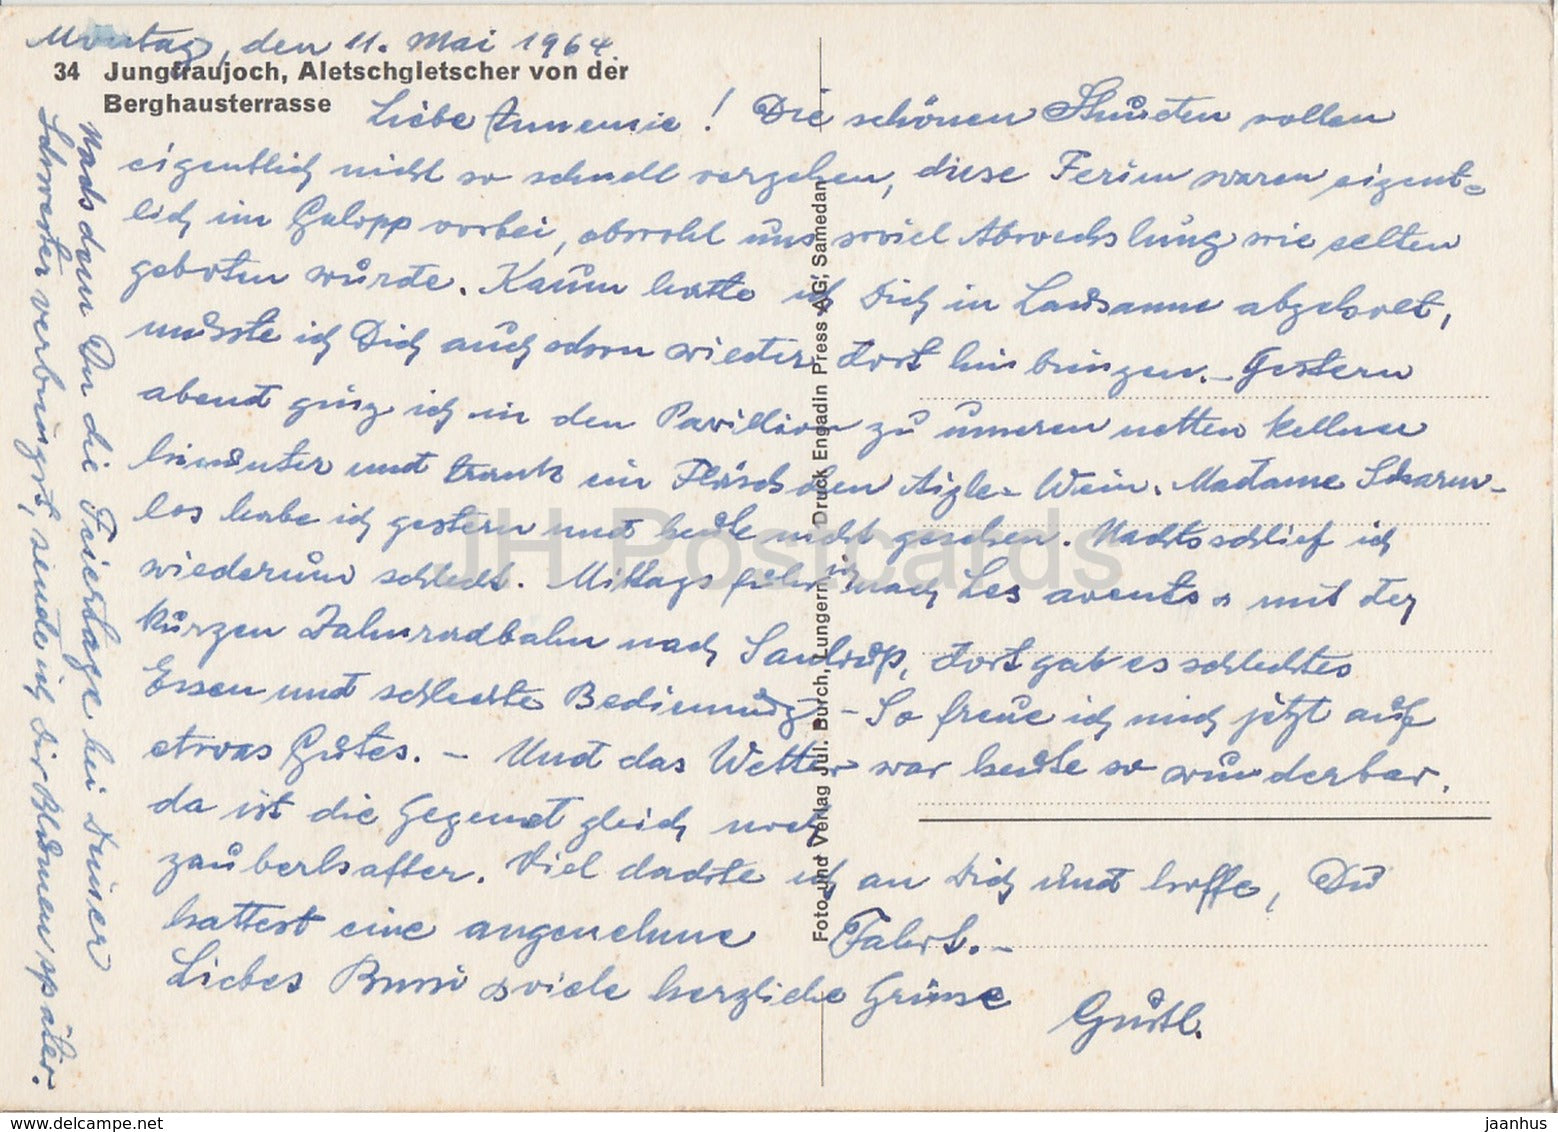 Montag, den 11. Mai 1964.
34 Jungfraujoch, Aletschgletscher von der
Berghausterrasse
Liebe Annemie! Die schönen Stunden sollen
eigentlich nicht so schnell vergehen, diese Ferien waren eigent-
lich im Galopp vorbei, obwohl uns soviel Abwechslung wie selten
geboten wurde. Kaum hatte ich Dich in Lausanne abgeholt,
musste ich Dich auch schon wieder dort hin bringen. – Gestern
abend ging ich in den Pavillion zu unseren netten Kellner
hinunter und trank ein Fläschchen Aigle-Wein. Madame Scharm-
los habe ich gestern und heute nicht gesehen. Nachts schlief ich
wiederum schlecht. Mittags fuhr ich nach Les avents & mit der
kurzen Zahnradbahn nach Sonloup, dort gab es schlechtes
Essen und schlechte Bedienung – So freue ich mich jetzt auf
etwas Gutes. – Und das Wetter war heute so wunderbar,
da ist die Gegend gleich noch
zauberhafter. Viel dachte ich an Dich und hoffe, Du
hattest eine angenehme Fahrt. –
Liebes Bussi & viele herzliche Grüsse
Gustl.
Nachdem Du die Feiertage bei Deiner
Schwester verbringst, sende ich Dir Blumen später.
Foto und Verlag Jul. Burch, Lungern Druck Engadin Press AG, Samedan
JH Postcards
delcampe.net
jaanhus